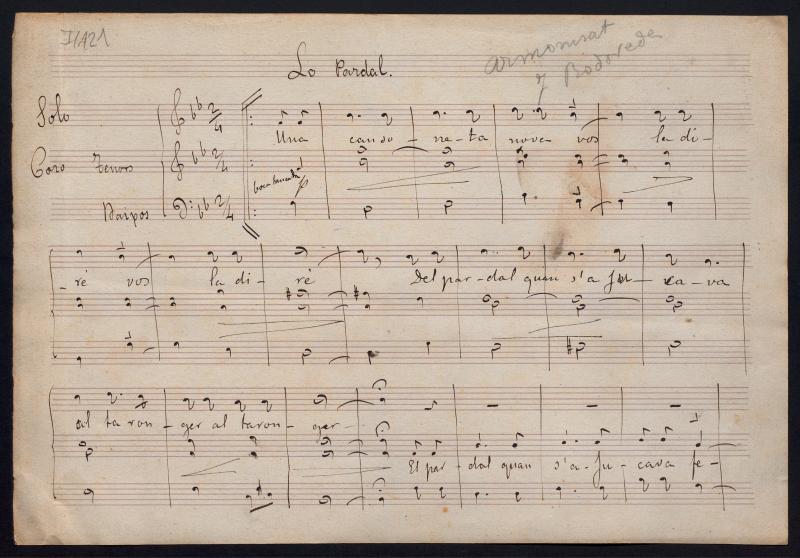 I/421
Lo Pardal.
Solo
Una canso-ne-ta nova vos la di-
Coro Tenors
boca tancada
Baixos
-ré vos la di-ré Del par-dal quan s'a ju-ca-va
al ta ron-ger al taron-ger
El par-dal quan s'a-ju-cava fe-